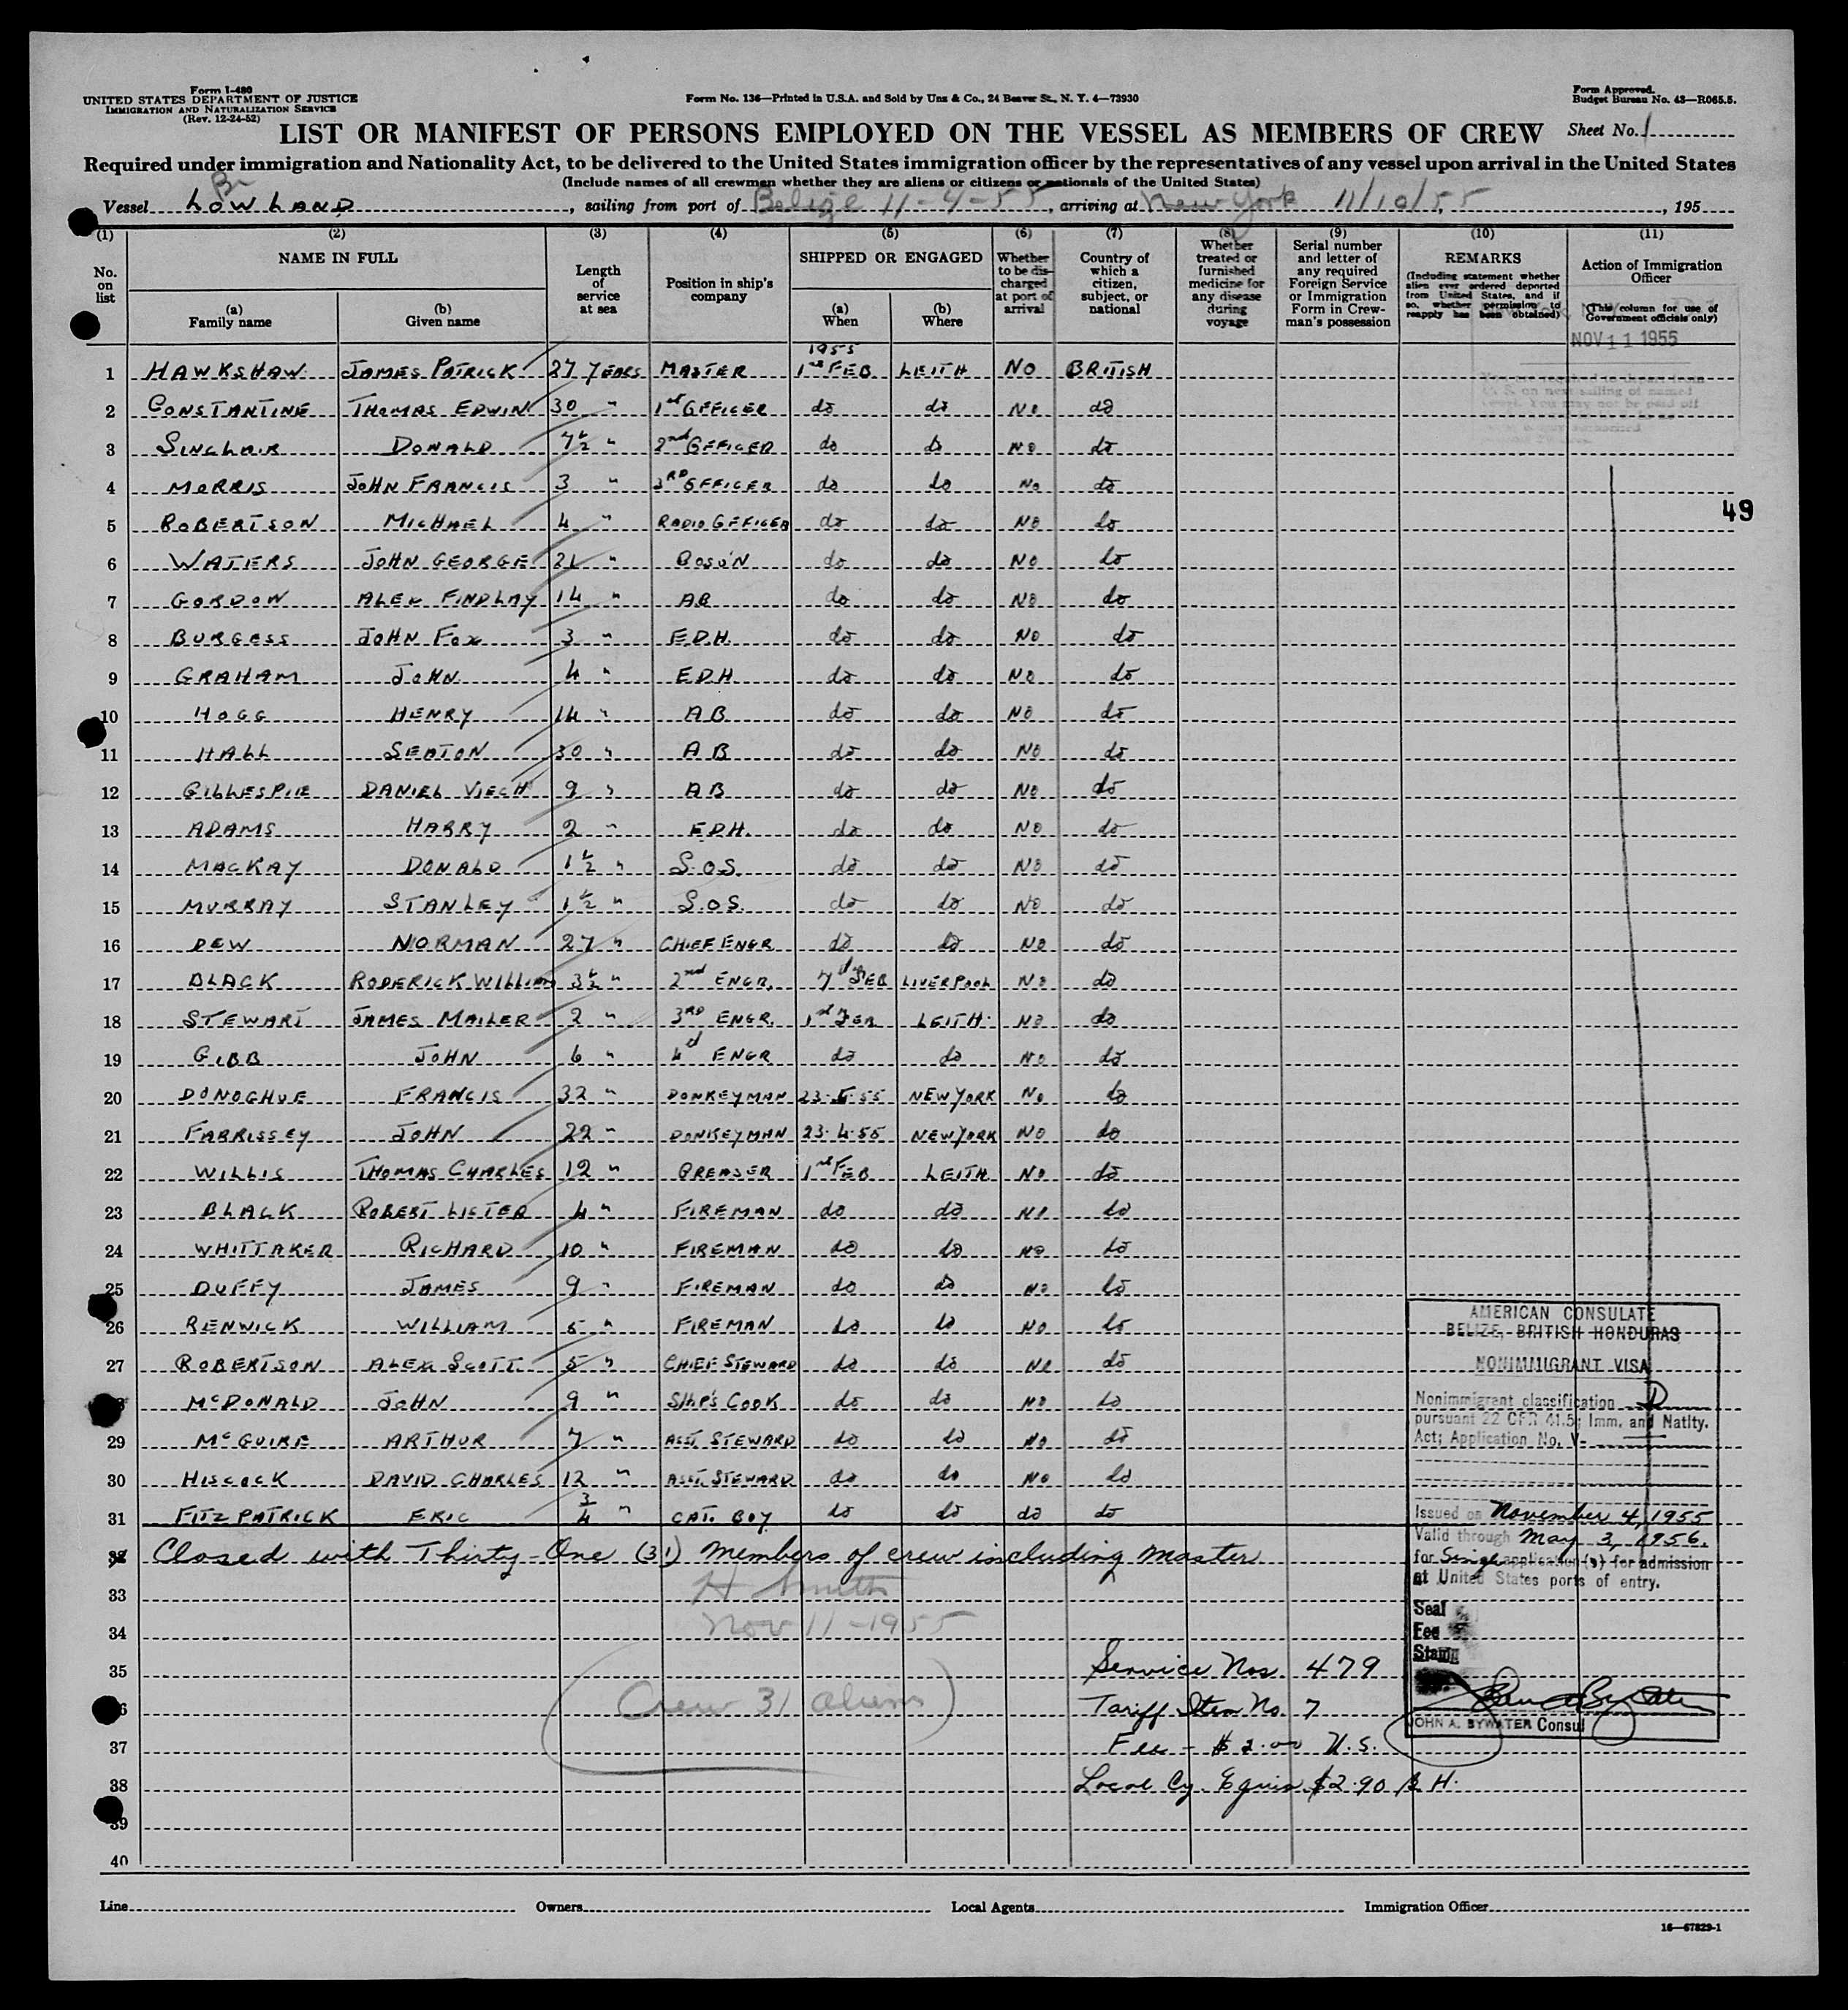 Form I-480
UNITED STATES DEPARTMENT OF JUSTICE
IMMIGRATION AND NATURALIZATION SERVICE
(Rev. 12-24-52)
Form No. 136—Printed in U.S.A. and Sold by Unz & Co., 24 Beaver St., N. Y. 4—73930
Form Approved.
Budget Bureau No. 43—R065.5.
LIST OR MANIFEST OF PERSONS EMPLOYED ON THE VESSEL AS MEMBERS OF CREW Sheet No. 1
Required under immigration and Nationality Act, to be delivered to the United States immigration officer by the representatives of any vessel upon arrival in the United States
(Include names of all crewmen whether they are aliens or citizens or nationals of the United States)
Br
Vessel LOWLAND, sailing from port of Belize 11-4-55, arriving at New York 11/10/55, 195
(1) (2) (3) (4) (5) (6) (7) (8) (9) (10) (11)
No. on list
NAME IN FULL
(a) Family name
(b) Given name
Length of service at sea
Position in ship's company
SHIPPED OR ENGAGED
(a) When
(b) Where
Whether to be discharged at port of arrival
Country of which a citizen, subject, or national
Whether treated or furnished medicine for any disease during voyage
Serial number and letter of any required Foreign Service or Immigration Form in Crewman's possession
REMARKS
(Including statement whether alien ever ordered deported from United States, and if so, whether permission to reapply has been obtained)
Action of Immigration Officer
(This column for use of Government officials only)
NOV 11 1955
1955
1 HAWKSHAW JAMES PATRICK 27 YEARS MASTER 1st FEB LEITH NO BRITISH
2 CONSTANTINE THOMAS EDWIN 30 " 1st OFFICER do do NO do
3 SINCLAIR DONALD 7½ " 2nd OFFICER do do NO do
4 MORRIS JOHN FRANCIS 3 " 3RD OFFICER do do NO do
49
5 ROBERTSON MICHAEL 4 " RADIO OFFICER do do NO do
6 WATERS JOHN GEORGE 21 " BOSUN do do NO do
7 GORDON ALEX FINDLAY 14 " AB do do NO do
8 BURGESS JOHN FOX 3 " E.D.H. do do NO do
9 GRAHAM JOHN 4 " EDH do do NO do
10 HOGG HENRY 14 " AB do do NO do
11 HALL SEATON 30 " AB do do NO do
12 GILLESPIE DANIEL VIECH 9 " AB do do NO do
13 ADAMS HARRY 2 " EDH. do do NO do
14 MACKAY DONALD 1½ " S.O.S. do do NO do
15 MURRAY STANLEY 1½ " S.O.S. do do NO do
16 DEW NORMAN 27 " CHIEF ENGR do do NO do
17 BLACK RODERICK WILLIAM 3½ " 2nd ENGR. 7th FEB LIVERPOOL NO do
18 STEWART JAMES MAILER 2 " 3RD ENGR. 1st FEB LEITH. NO do
19 GIBB JOHN 6 " 4 ENGR do do NO do
20 DONOGHUE FRANCIS 32 " DONKEYMAN 23-5-55 NEW YORK NO do
21 FARRISSEY JOHN 22 " DONKEYMAN 23-4-55 NEW YORK NO do
22 WILLIS THOMAS CHARLES 12 " GREASER 1st FEB LEITH NO do
23 BLACK ROBERT LISTER 4 " FIREMAN do do NO do
24 WHITTAKER RICHARD 10 " FIREMAN do do NO do
25 DUFFY JAMES 9 " FIREMAN do do NO do
26 RENWICK WILLIAM 5 " FIREMAN do do NO do
27 ROBERTSON ALEX SCOTT 5 " CHIEF STEWARD do do NO do
McDONALD JOHN 9 " SHIP'S COOK do do NO do
29 McGUIRE ARTHUR 7 " ASST. STEWARD do do NO do
30 HISCOCK DAVID CHARLES 12 " ASST. STEWARD do do NO do
31 FITZPATRICK ERIC ¾ " CAT. BOY do do do do
32 Closed with Thirty-One (31) Members of crew including Master
33 H Smith
34 Nov 11-1955
35 Service Nos. 479
36 (Crew 31 aliens) Tariff Item No. 7
37 Fee - $2.00 U.S.
38 Local Cy. Equiv. $2.90 B.H.
39
40
AMERICAN CONSULATE
BELIZE, BRITISH HONDURAS
NONIMMIGRANT VISA
Nonimmigrant classification D
pursuant 22 CFR 41.5; Imm. and Natlty.
Act; Application No. V-
Issued on November 4, 1955
Valid through May 3, 1956.
for Single application(s) for admission
at United States ports of entry.
Seal
Fee
Stamp
JOHN A. BYWATER Consul
Line Owners Local Agents Immigration Officer
16—67829-1